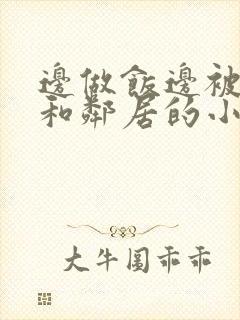 邊做飯邊被
和鄰居的小
大牛圈乖乖